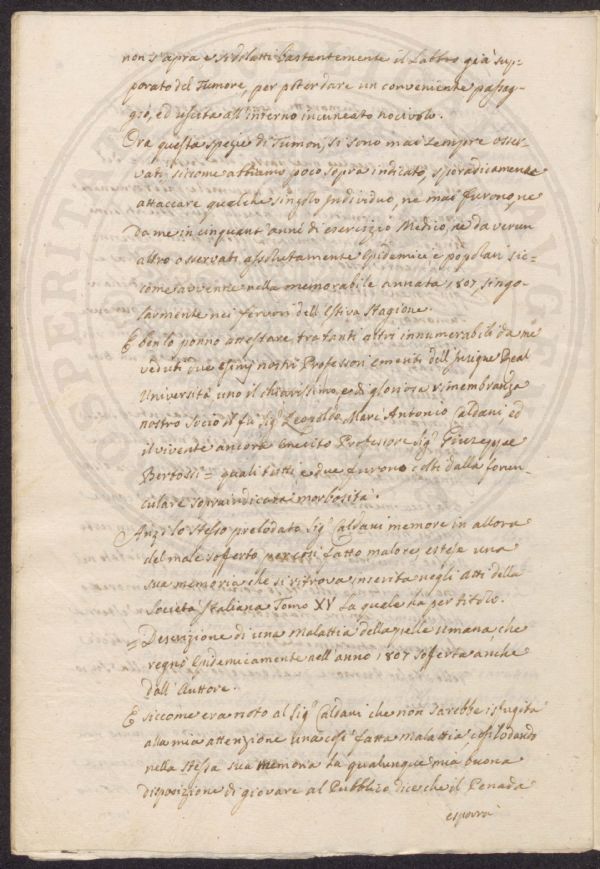 non s'apra, e si dilatti bastantemente il Labbro già sup-
porato del Tumore, per poter dare un conveniente passag-
gio, ed uscita all'interno incuneato nocivolo.
Ora questa spezie di Tumori, si sono mai sempre osser-
vati siccome abbiamo poco sopra indicato, sporadicamente
attaccare qualche singolo Individuo, ne mai furono, ne
da me in cinquant'anni di esercizio Medico, ne da verun
altro osservati assolutamente Epidemici e popolari sic-
come avvenne nella memorabile annata 1807, singo-
larmente nei fervori dell'Estiva Stagione.
E ben lo ponno attestare tra tanti altri innumerabili da me
veduti due esimj nostri Professori emeriti dell' Reale
Università uno il chiarissimo, e di gloriosa rimembranza
nostro Socio il fu Sigr Leopoldo Marc'Antonio Caldani, ed
il vivente ancora emerito Professore Sigr Giuseppe
Bertossi = quali tutti e due furono colti dalla foron-
culare sopraindicata morbosità.
Anzi lo stesso prelodato Sigr Caldani memore in allora
del male sofferto, per così fatto malore, estese una
sua memoria che si ritrova inserita negli Atti della
Società Italiana Tomo XV La quale ha per titolo.
= Descrizione di una malattia della pelle umana che
regnò Epidemicamente nell'anno 1807 sofferta anche
dall'Auttore.
E siccome era noto al Sigr Caldani che non sarebbe isfugita
alla mia attenzione una così fatta malattia, così lodando
nella stessa sua memoria la qualunque mia buona
disposizione di giovare al Pubblico dice che il Penada
esporrà